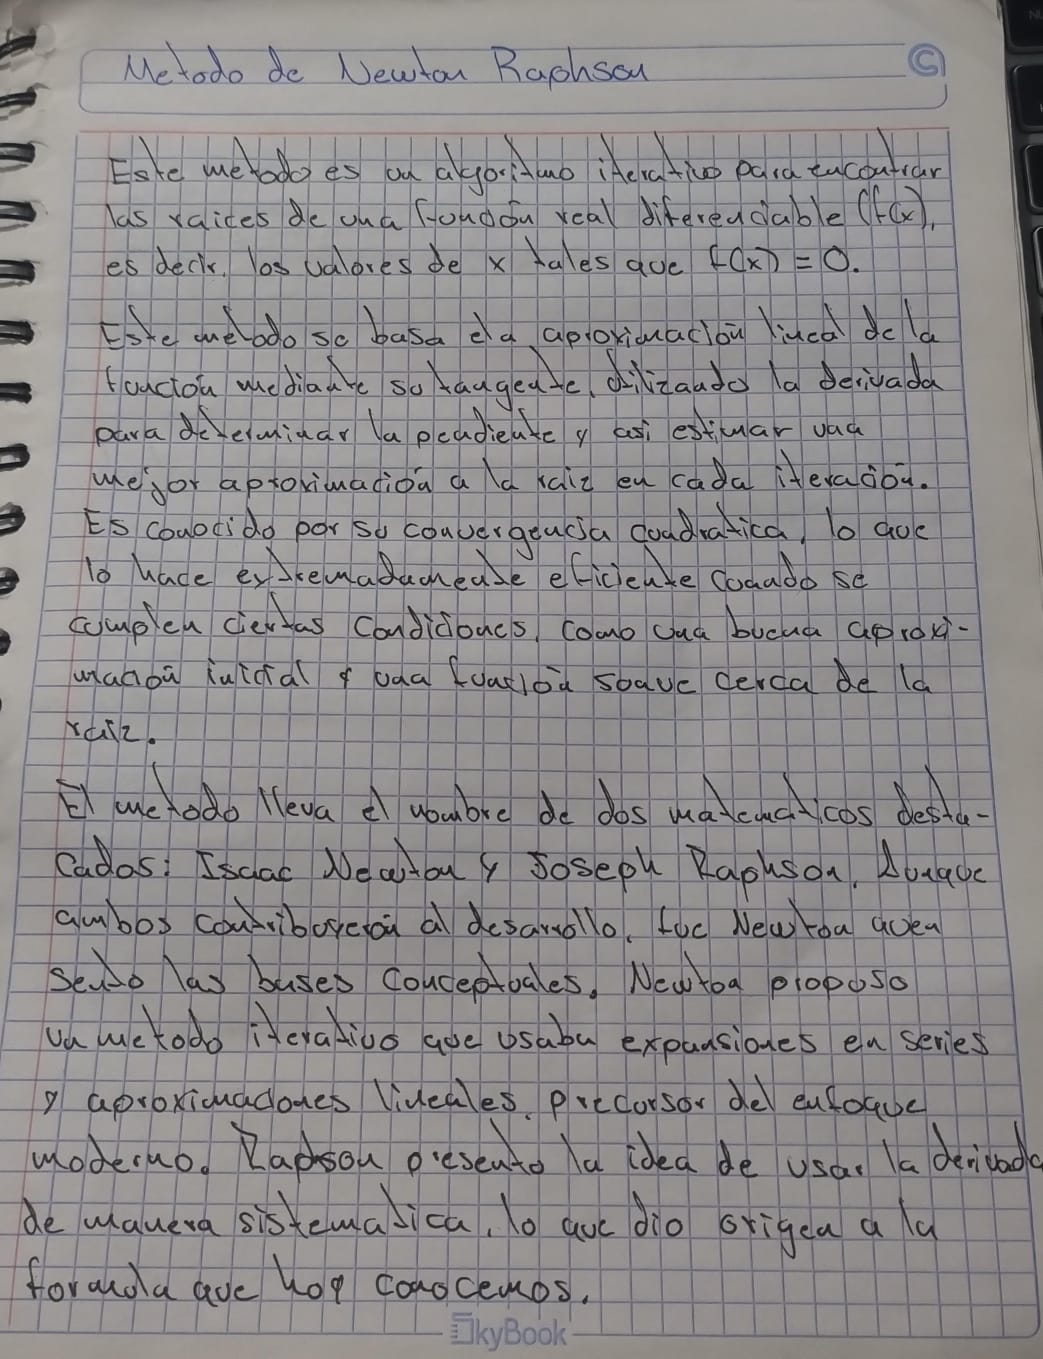 Metodo de Newton Raphson
Este metodo es un algoritmo iterativo para encontrar
las raices de una función real diferenciable (f(x),
es decir, los valores de x tales que f(x) = 0.
Este metodo se basa el a aproximación lineal de la
función mediante su tangente, utilizando la derivada
para determinar la pendiente y asi estimar una
mejor aproximación a la raiz en cada iteración.
Es conocido por su convergencia cuadratica, lo que
lo hace extremadamente eficiente cuando se
cumplen ciertas condiciones, como una buena aproxi-
mación inicial y una función suave cerca de la
raiz.
El metodo lleva el nombre de dos matematicos desta-
cados: Isaac Newton y Joseph Raphson. Aunque
ambos contribuyeron al desarrollo, fue Newton quen
sento las bases conceptuales. Newton propuso
un metodo iterativo que usaba expansiones en series
y aproximaciones lineales, precursor del enfoque
moderno. Rapson presento la idea de usar la derivada
de manera sistematica, lo que dio origen a la
formula que hoy conocemos.
SkyBook